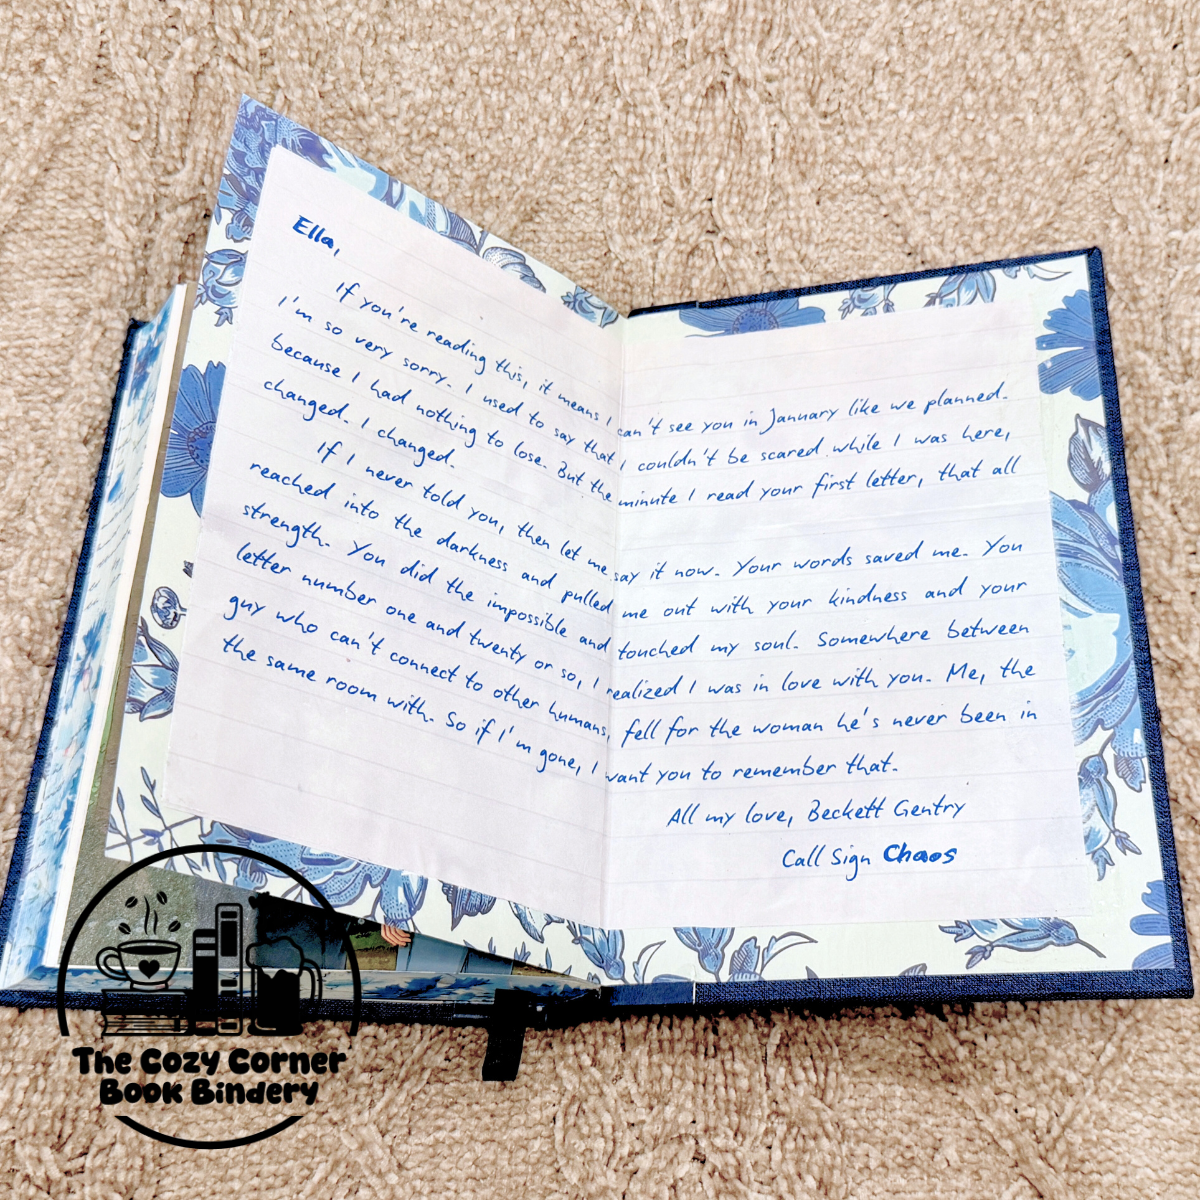 Ella,
If you're reading this, it means I can't see you in January like we planned.
I'm so very sorry. I used to say that I couldn't be scared while I was here,
because I had nothing to lose. But the minute I read your first letter, that all
changed. I changed.
If I never told you, then let me say it now. Your words saved me. You
reached into the darkness and pulled me out with your kindness and your
strength. You did the impossible and touched my soul. Somewhere between
letter number one and twenty or so, I realized I was in love with you. Me, the
guy who can't connect to other humans, fell for the woman he's never been in
the same room with. So if I'm gone, I want you to remember that.
All my love, Beckett Gentry
Call Sign Chaos
The Cozy Corner
Book Bindery